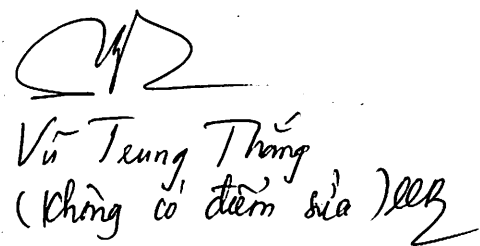 Vũ Trung Thắng
(Không có điểm sửa)